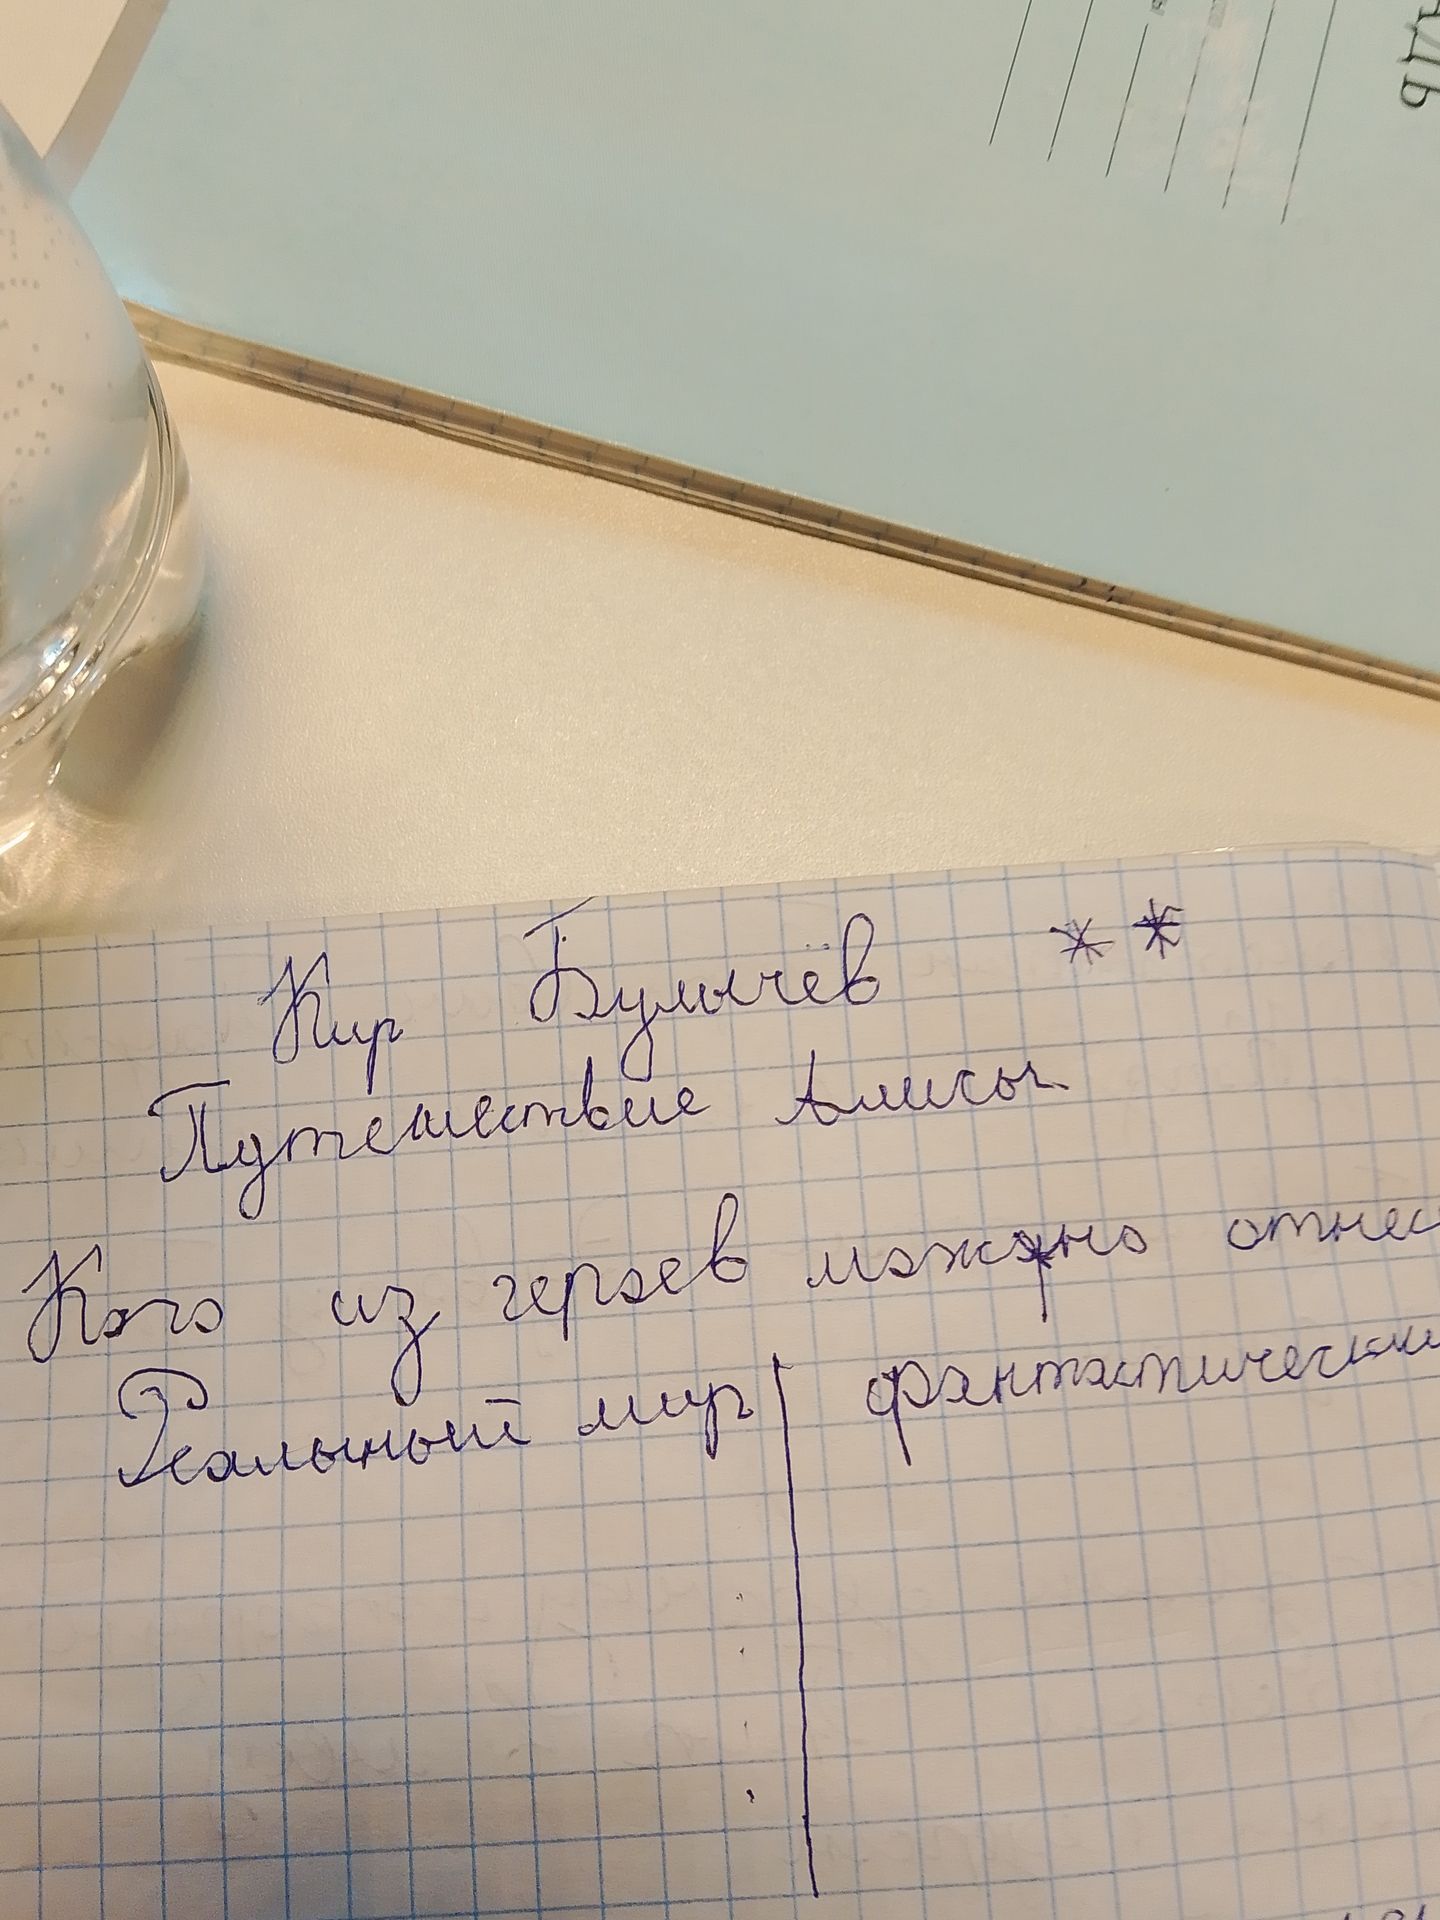 Кир Булычёв **
Путешествие Алисы
Кого из героев можно отнес
Реальный мир | фантастически